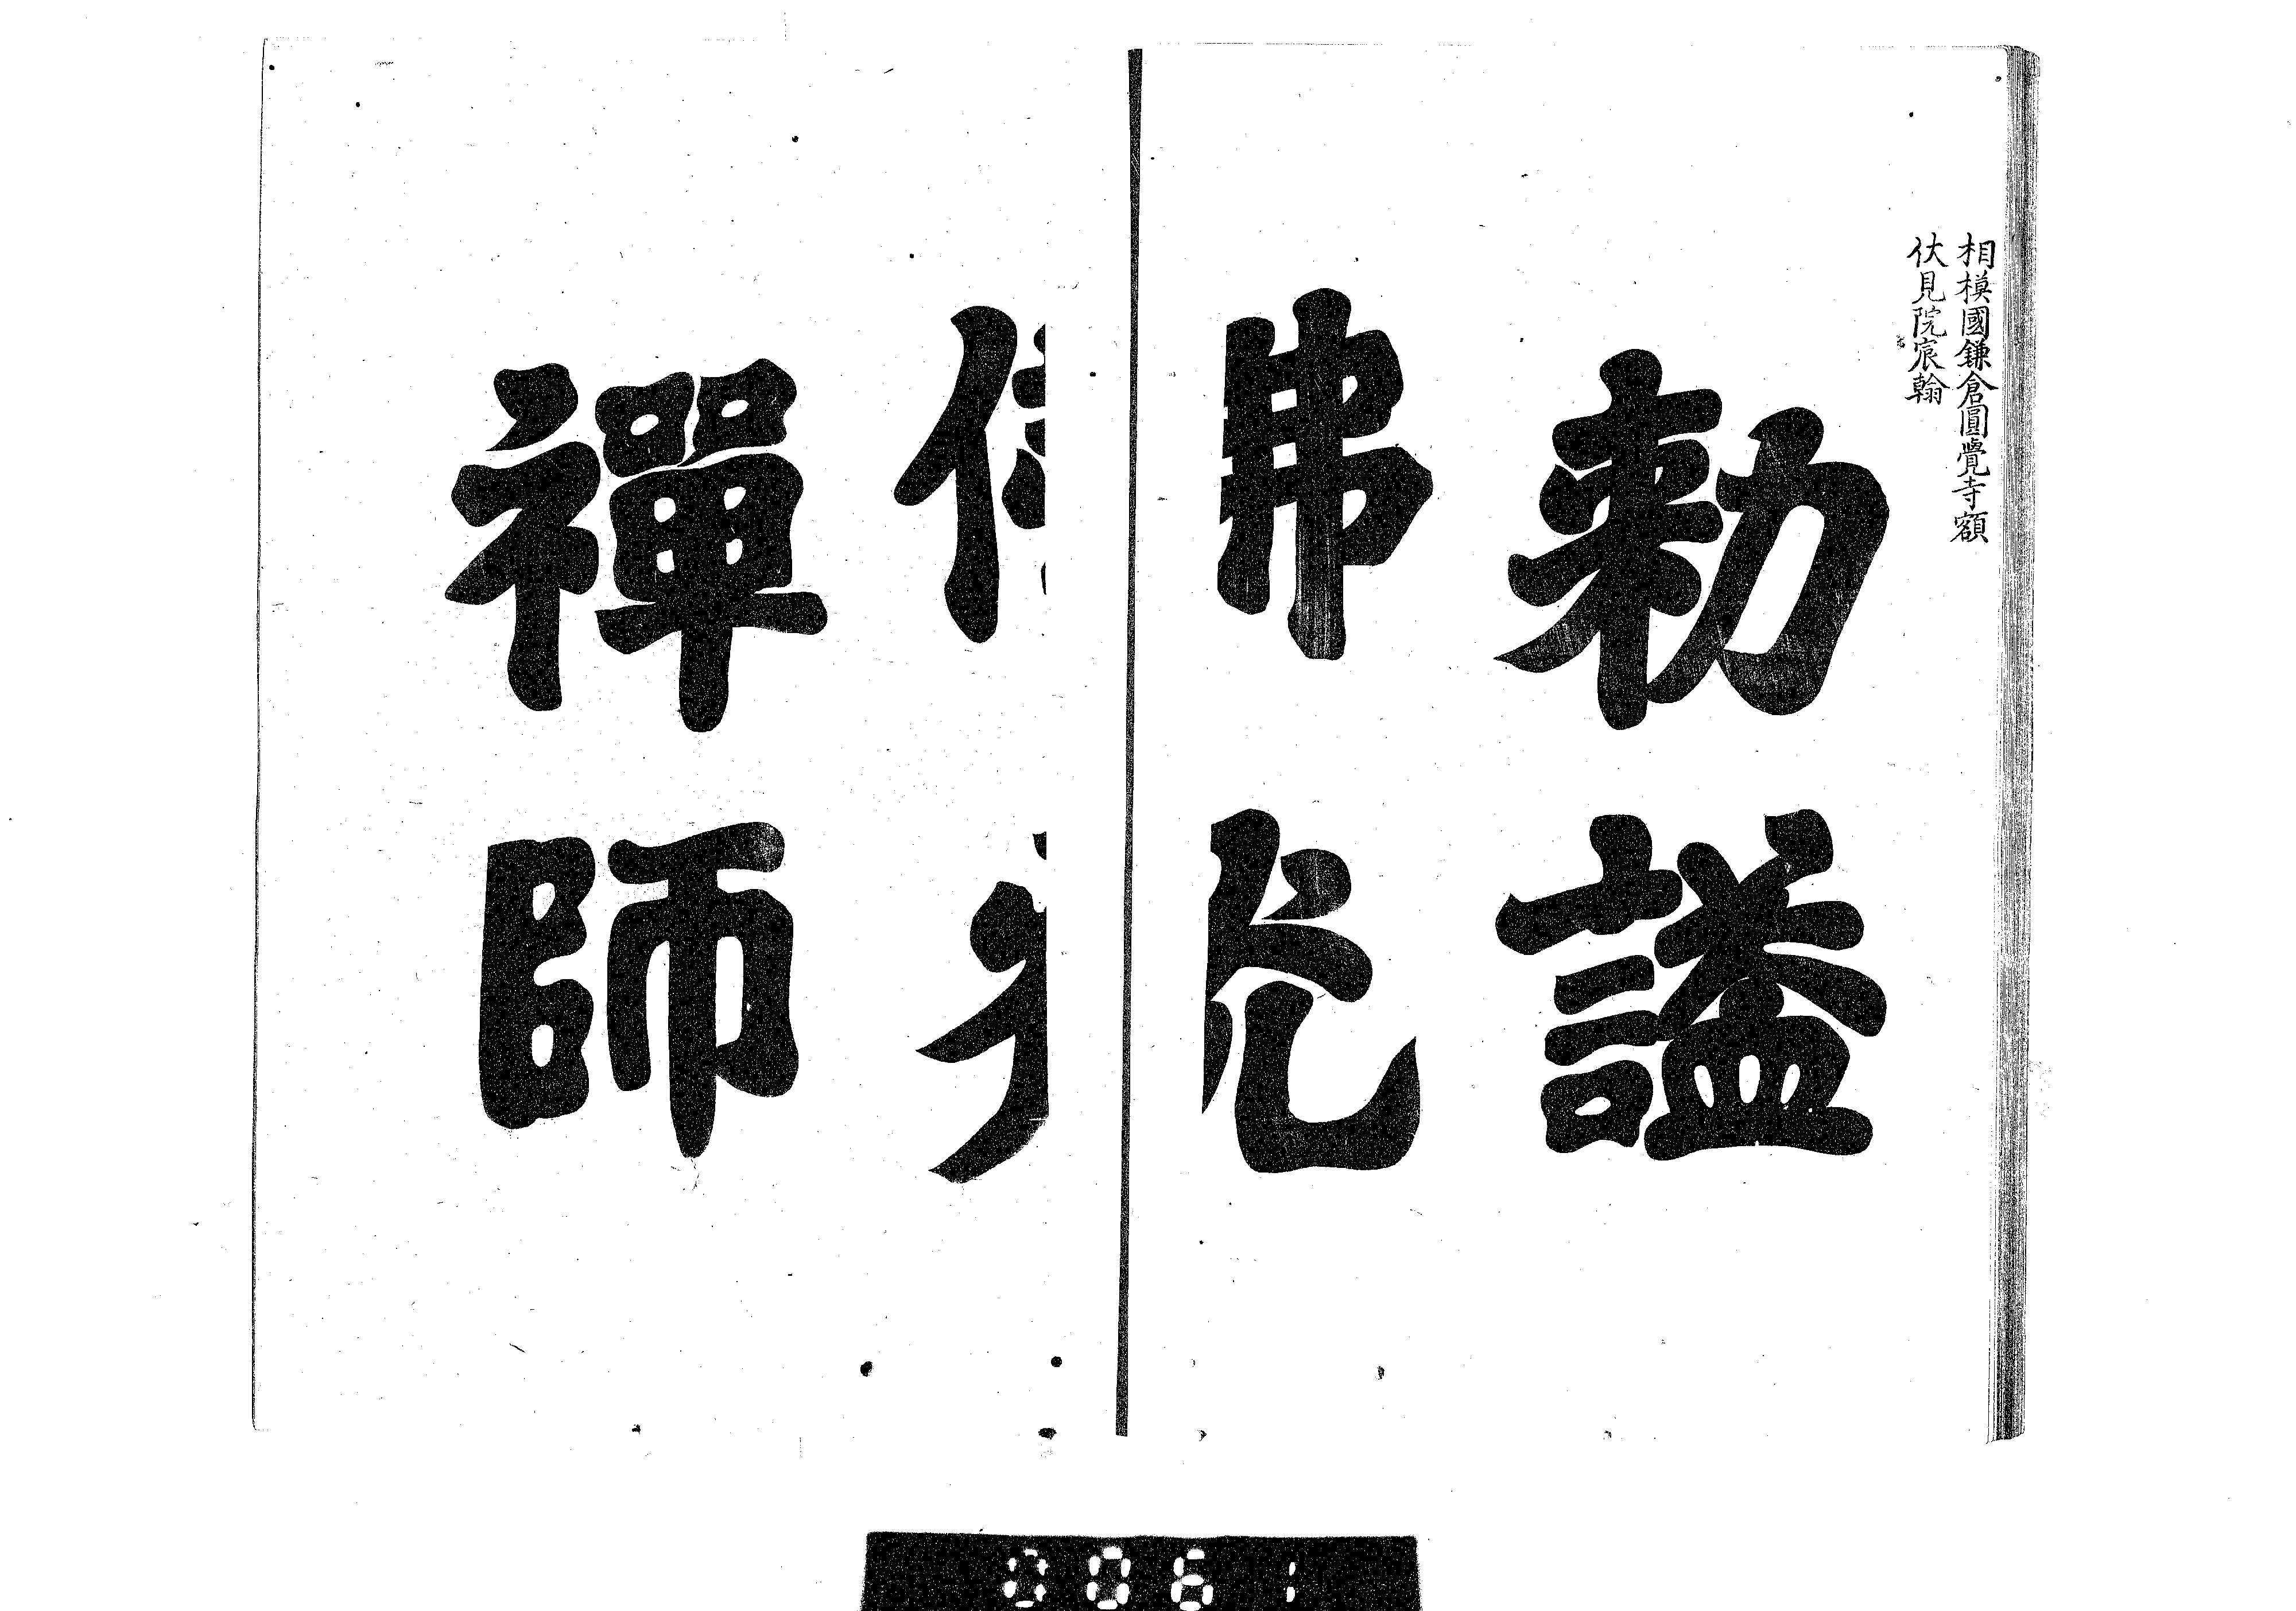 相模國鎌倉圓覺寺額
伏見院宸翰
勅謚
佛光
禪師
0061